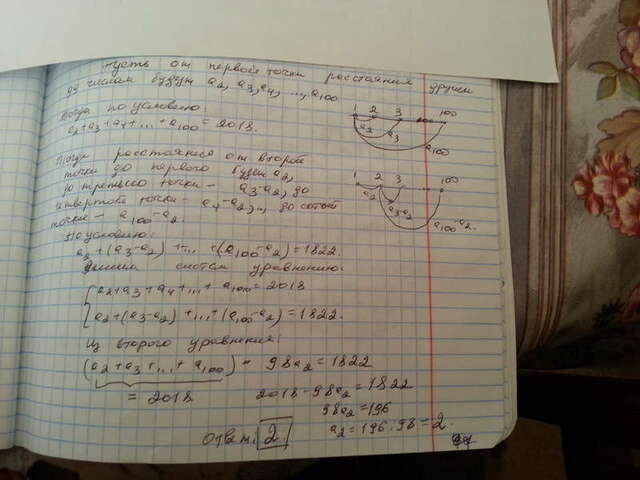 Пусть от первой точки расстояния другим
до числам будут a₂, a₃, a₄, ..., a₁₀₀.
Тогда по условию
a₂+a₃+a₄+...+a₁₀₀=2018.
1 2 3 100
a₂ a₃ a₁₀₀
Тогда расстояния от второй
точки до первого будет a₂,
до третьего точки - a₃-a₂, до
четвертой точки - a₄-a₂, ..., до сотой
точке - a₁₀₀-a₂.
1 2 3 100
a₂ a₃-a₂ a₁₀₀-a₂.
По условию:
a₂+(a₃-a₂)+...+(a₁₀₀-a₂)=1822.
Решим систем уравнению:
{a₂+a₃+a₄+...+a₁₀₀=2018
a₂+(a₃-a₂)+...+(a₁₀₀-a₂)=1822.
Из второго уравнения:
(a₂+a₃+...+a₁₀₀) - 98a₂=1822
= 2018 2018-98a₂=1822
98a₂=196
a₂=196:98=2.
Ответ: 2